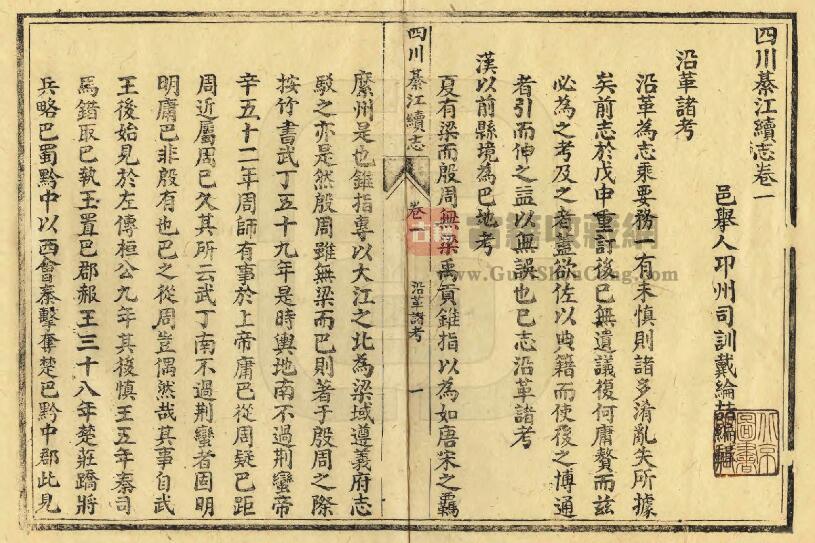 四川綦江續志卷一
邑舉人邛州司訓戴綸喆編輯
沿革諸考
沿革為志乘要務一有未慎則諸多淆亂失所據
矣前志於戊申重訂後已無遺議復何庸贅而茲
必為之考及之者蓋欲佐以典籍而使後之博通
者引而伸之益以無誤也巳志沿革諸考
漢以前縣境為巴地考
夏有梁而殷周無梁禹貢錐指以為如唐宋之羈
四川綦江續志
卷一
沿革諸考
一
縻州是也錐指專以大江之北為梁域遵義府志
駁之亦是然殷周雖無梁而巴則著于殷周之際
按竹書武丁五十九年是時輿地南不過荆蠻帝
辛五十二年周師有事於上帝庸巴從周疑巴距
周近屬周已久其所云武丁南不過荆蠻者固明
明庸巴非殷有也巴之從周豈偶然哉其事自武
王後始見於左傳桓公九年其後慎王五年秦司
馬錯取巴執王置巴郡赧王三十八年楚莊蹻將
兵略巴蜀黔中以西會秦擊奪楚巴黔中郡此見
古籍收藏網
www.GuJiShouCang.com